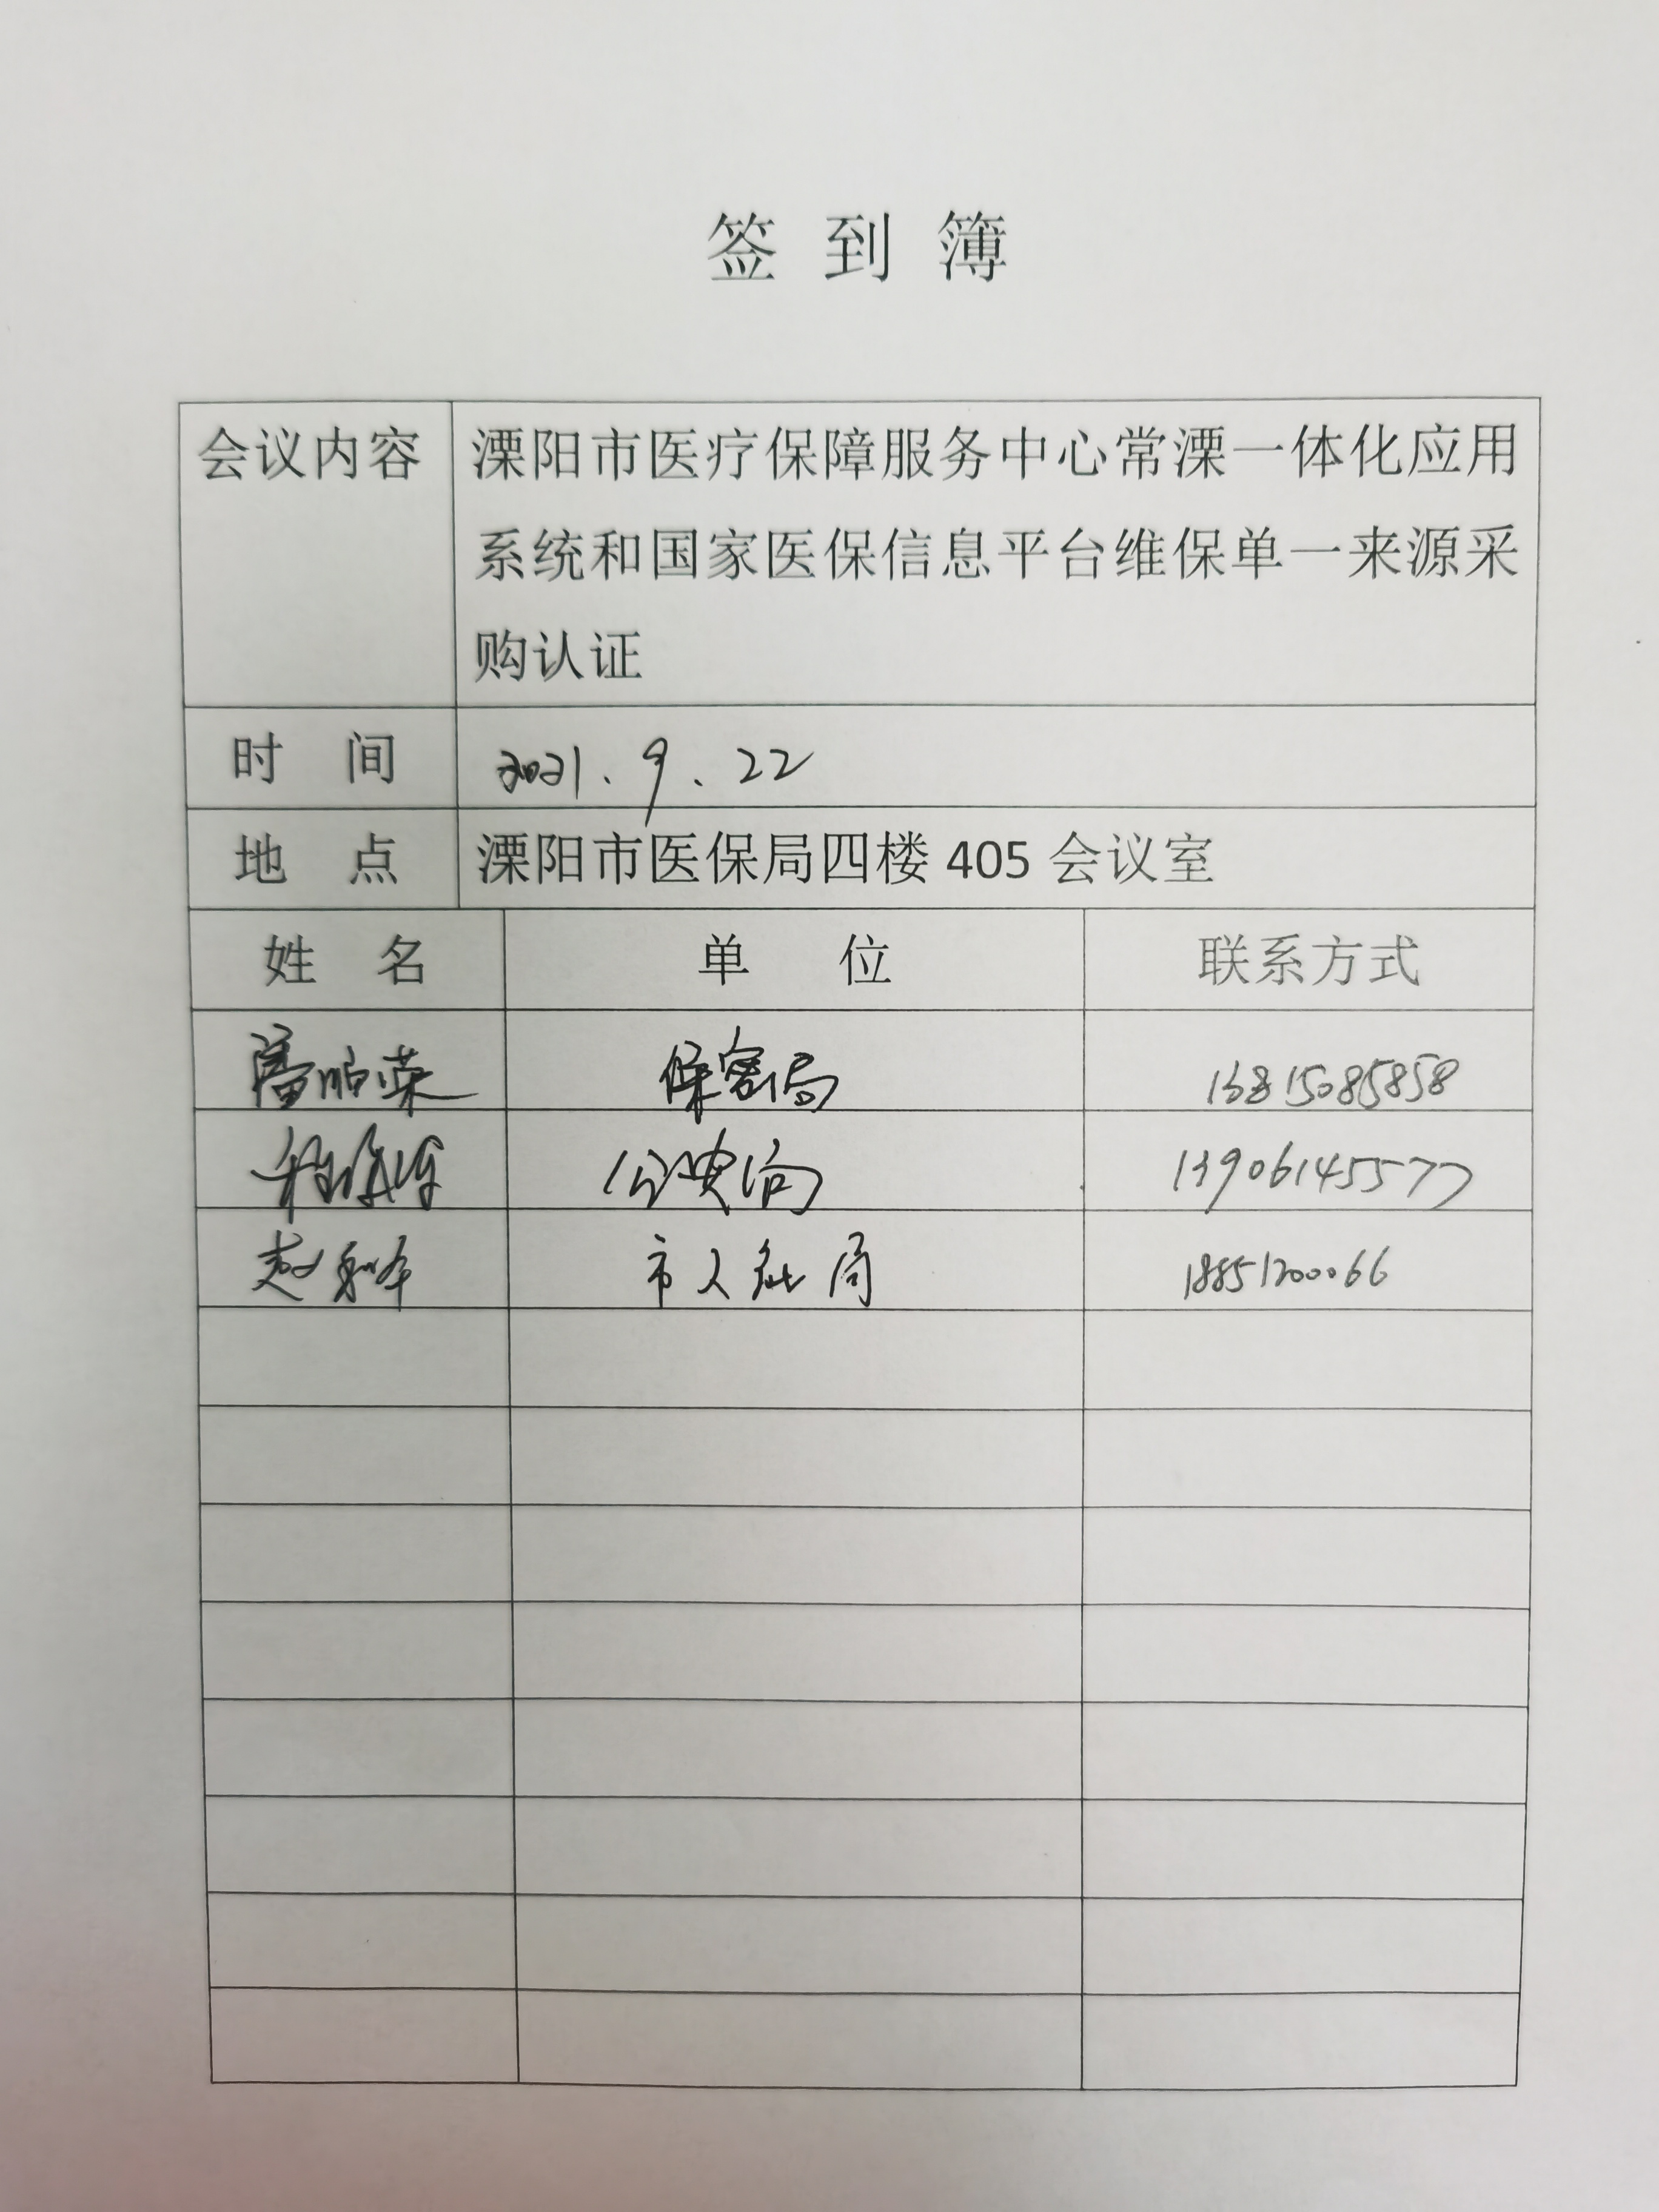 签到簿
会议内容 溧阳市医疗保障服务中心常溧一体化应用
系统和国家医保信息平台维保单一来源采
购认证
时 间 2021.9.22
地 点 溧阳市医保局四楼 405 会议室
姓 名 单 位 联系方式
保密局 13815085858
13906145577
赵 市人社局 18851200066